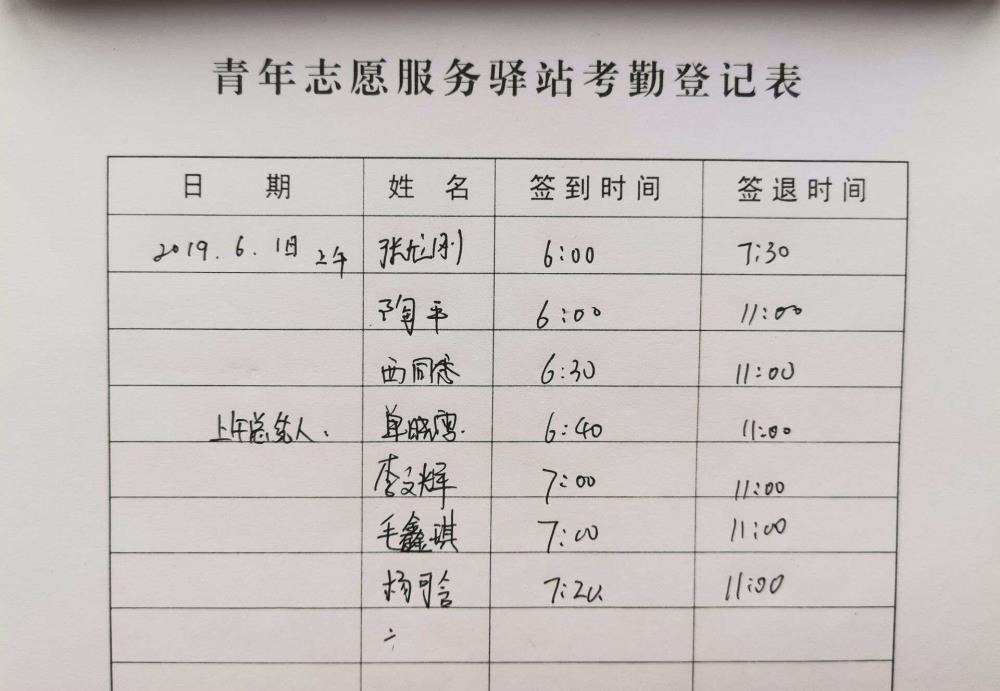 青年志愿服务驿站考勤登记表
日 期 姓 名 签到时间 签退时间
2019.6.1日 上午 张龙刚 6:00 7:30
陶平 6:00 11:00
西同悉 6:30 11:00
上午总结人. 单晓雪. 6:40 11:00
李文辉 7:00 11:00
毛鑫琪 7:00 11:00
杨可含 7:20 11:00